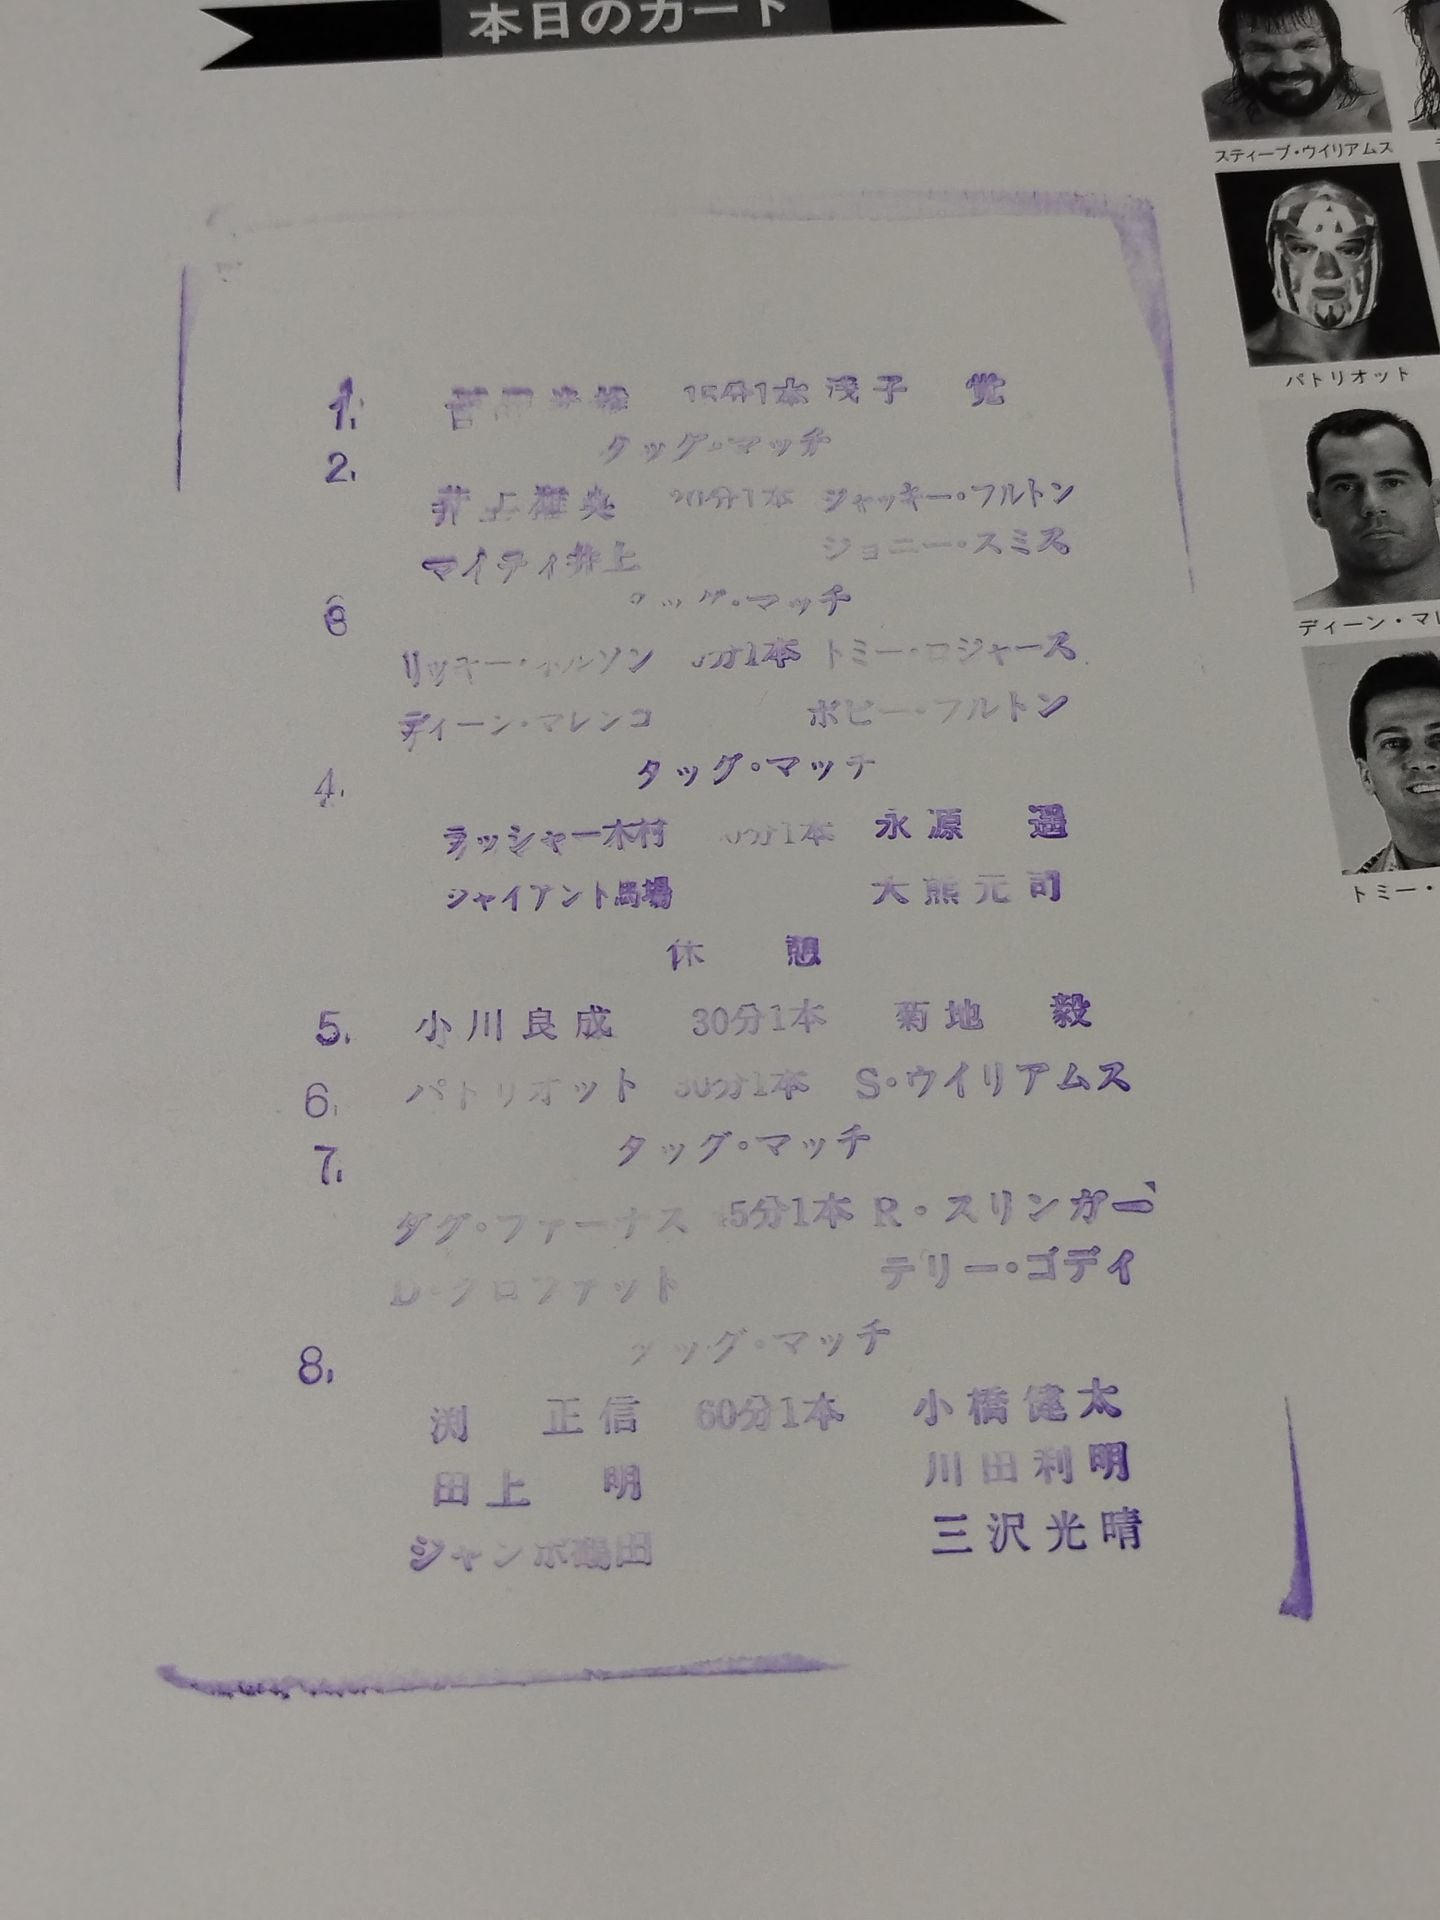 本日のカード
スティーブ・ウイリアムス
パトリオット
ディーン・マレ
トミー・
1. 15分1本 浅子 覚
タッグ・マッチ
2.
井上雅央 20分1本 ジャッキー・フルトン
マイティ井上 ジョニー・スミス
タッグ・マッチ
3
リッキー・ 分1本 トミー・ロジャース
ディーン・マレンコ ボビー・フルトン
タッグ・マッチ
4.
ラッシャー木村 0分1本 永源 遥
ジャイアント馬場 大熊元司
休 憩
5. 小川良成 30分1本 菊地 毅
6. パトリオット 30分1本 S・ウイリアムス
タッグ・マッチ
7.
ダグ・ファーナス 5分1本 R・スリンガー
D・クロファット テリー・ゴディ
タッグ・マッチ
8.
渕 正信 60分1本 小橋健太
田上 明 川田利明
ジャンボ鶴田 三沢光晴